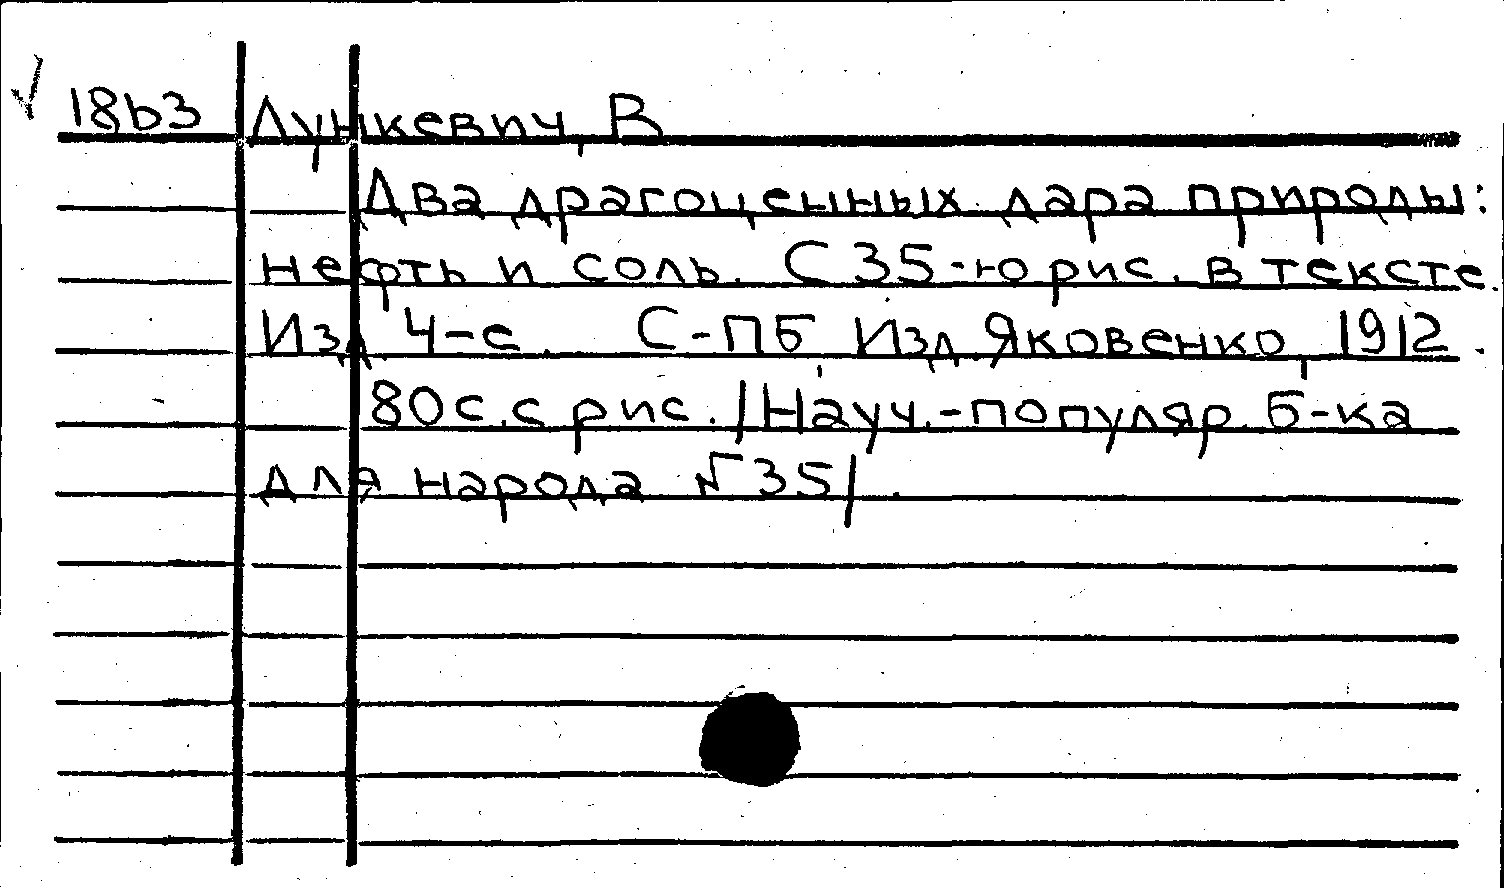 18б3 Лункевич, В
Два драгоценных дара природы:
нефть и соль. С 35-ю рис. в тексте.
Изд. 4-е. С-ПБ Изд. Яковенко, 1912.
80 с. с рис. /Науч.-популяр. б-ка
для народа №35/.